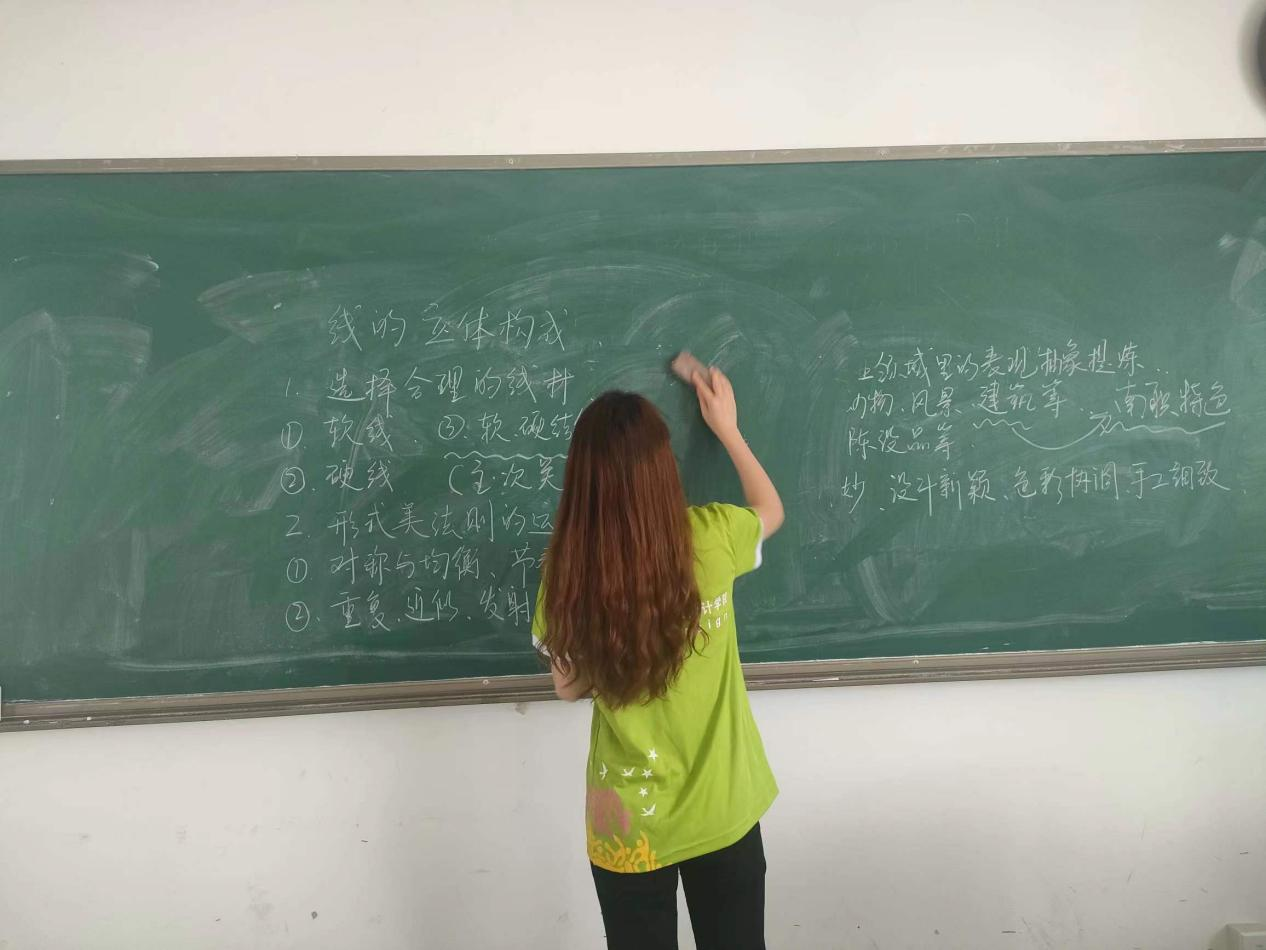 线的立体构成
1. 选择合理的线材
① 软线. ③.软.硬结
②. 硬线 (主.次关
2. 形式美法则的运
①. 对称与均衡、节
②. 重复.近似.发射
域里的表现抽象提炼..
物.风景.建筑等. 南职特色
陈设品等.
妙.设计新颖.色彩协调.手工细致.
计学院
ign